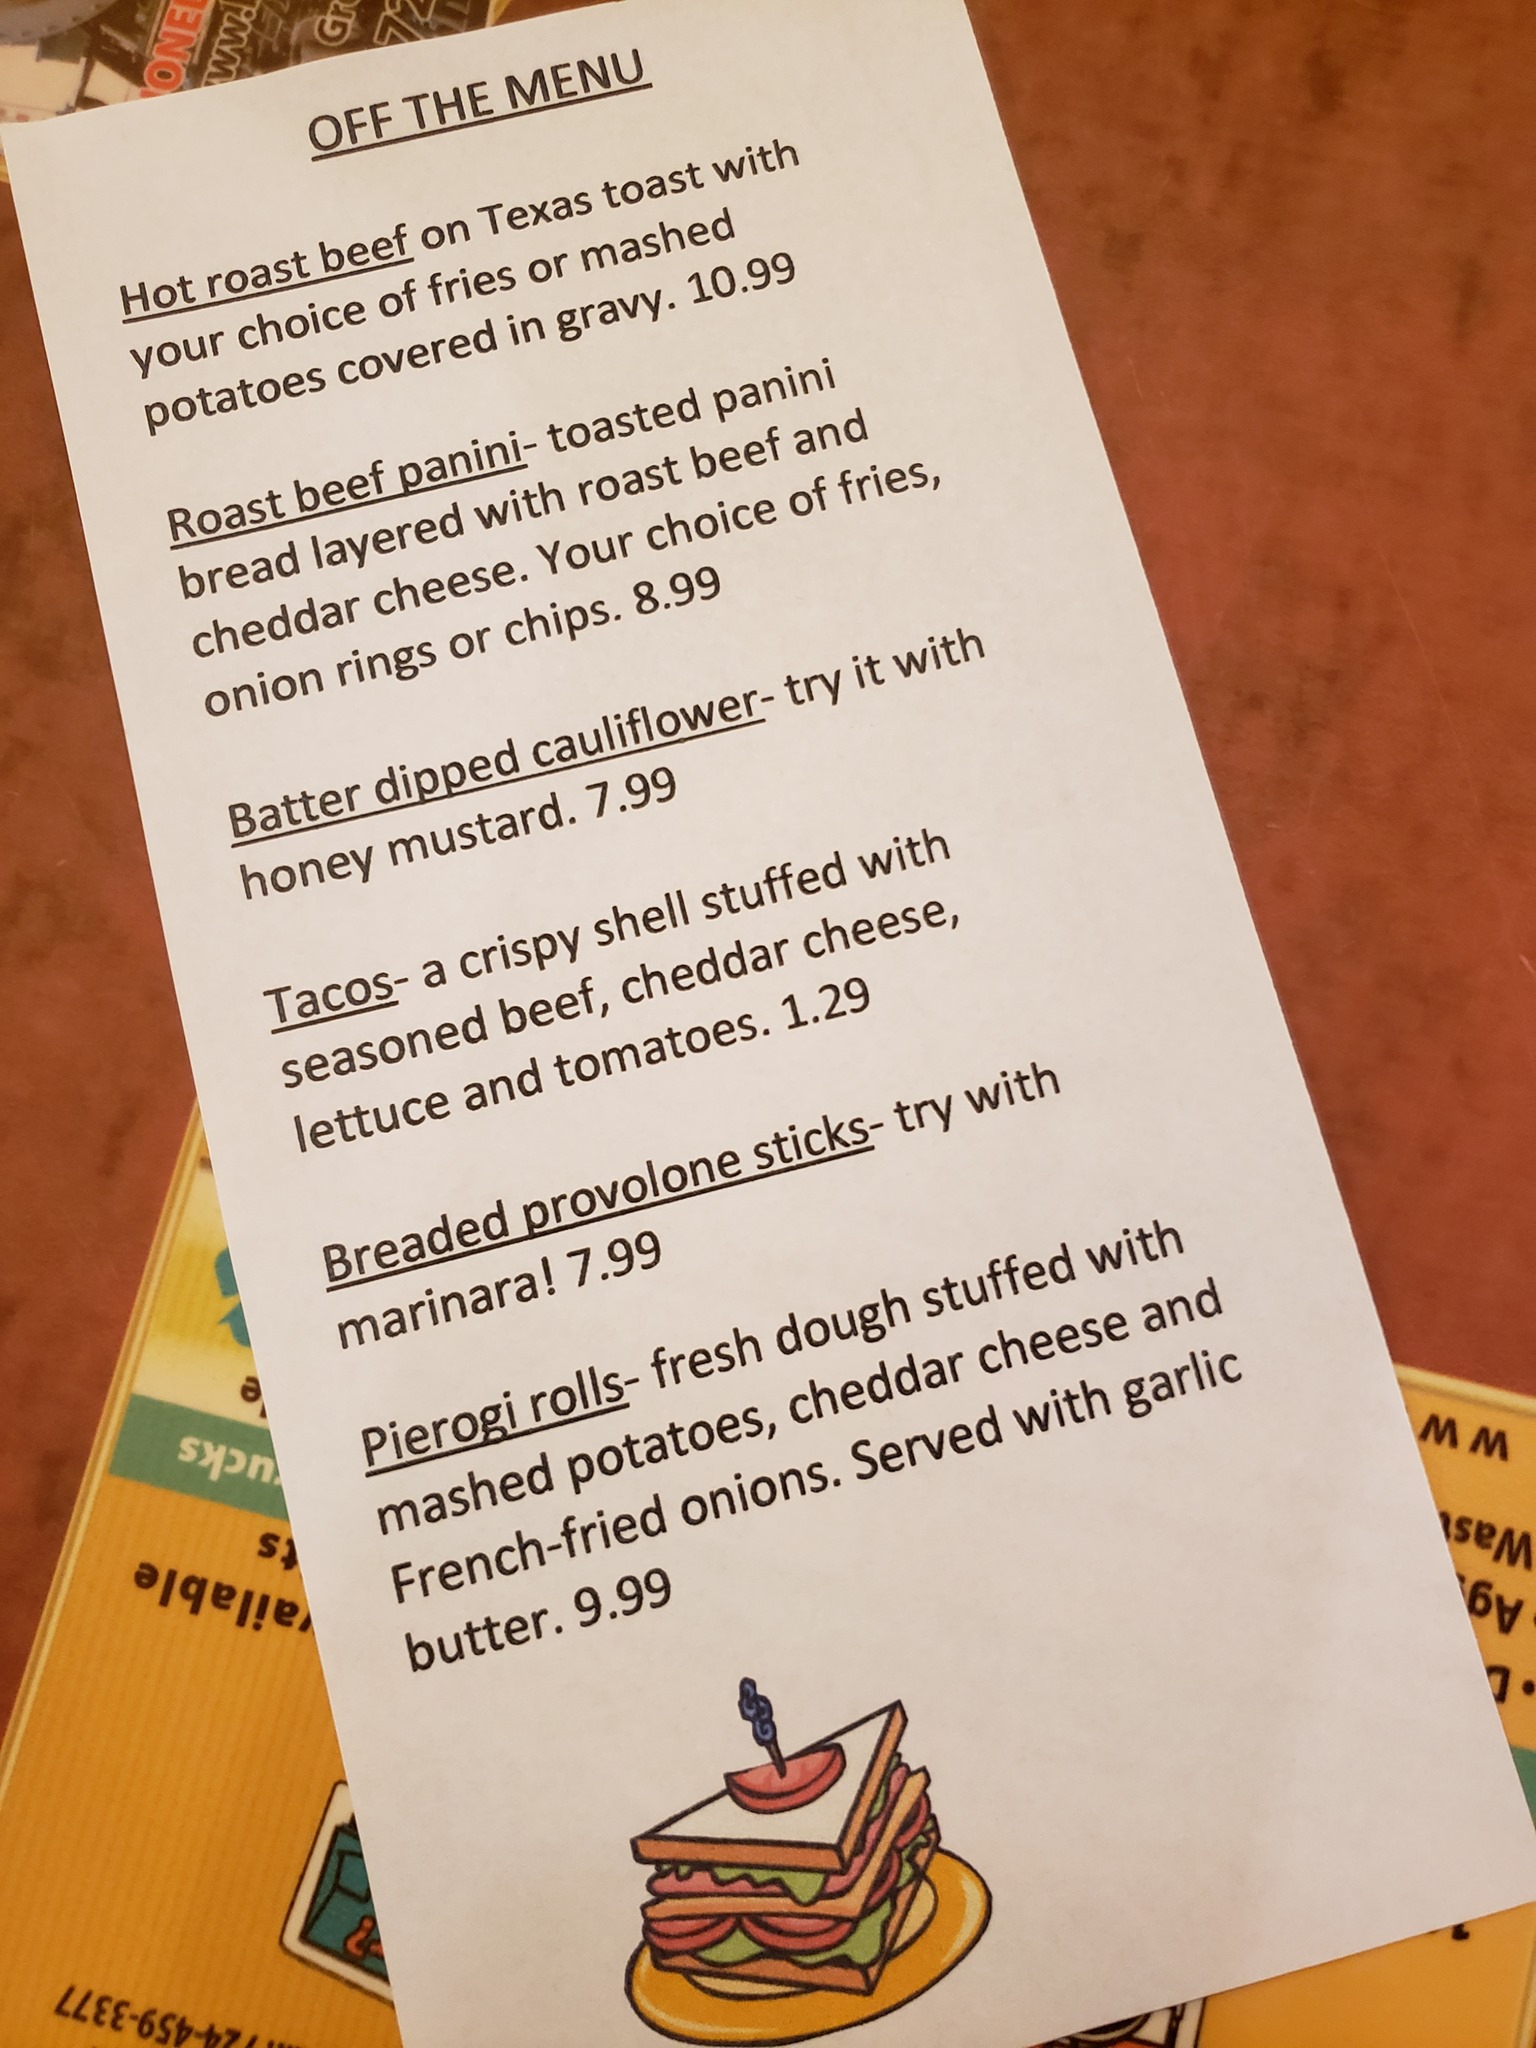 ONE
www.
Gr
72
OFF THE MENU
Hot roast beef on Texas toast with
your choice of fries or mashed
potatoes covered in gravy. 10.99
Roast beef panini- toasted panini
bread layered with roast beef and
cheddar cheese. Your choice of fries,
onion rings or chips. 8.99
Batter dipped cauliflower- try it with
honey mustard. 7.99
Tacos- a crispy shell stuffed with
seasoned beef, cheddar cheese,
lettuce and tomatoes. 1.29
Breaded provolone sticks- try with
marinara! 7.99
Pierogi rolls- fresh dough stuffed with
mashed potatoes, cheddar cheese and
French-fried onions. Served with garlic
butter. 9.99
ucks
ts
vailable
724-459-3377
W W
Wast
• Ag
• D